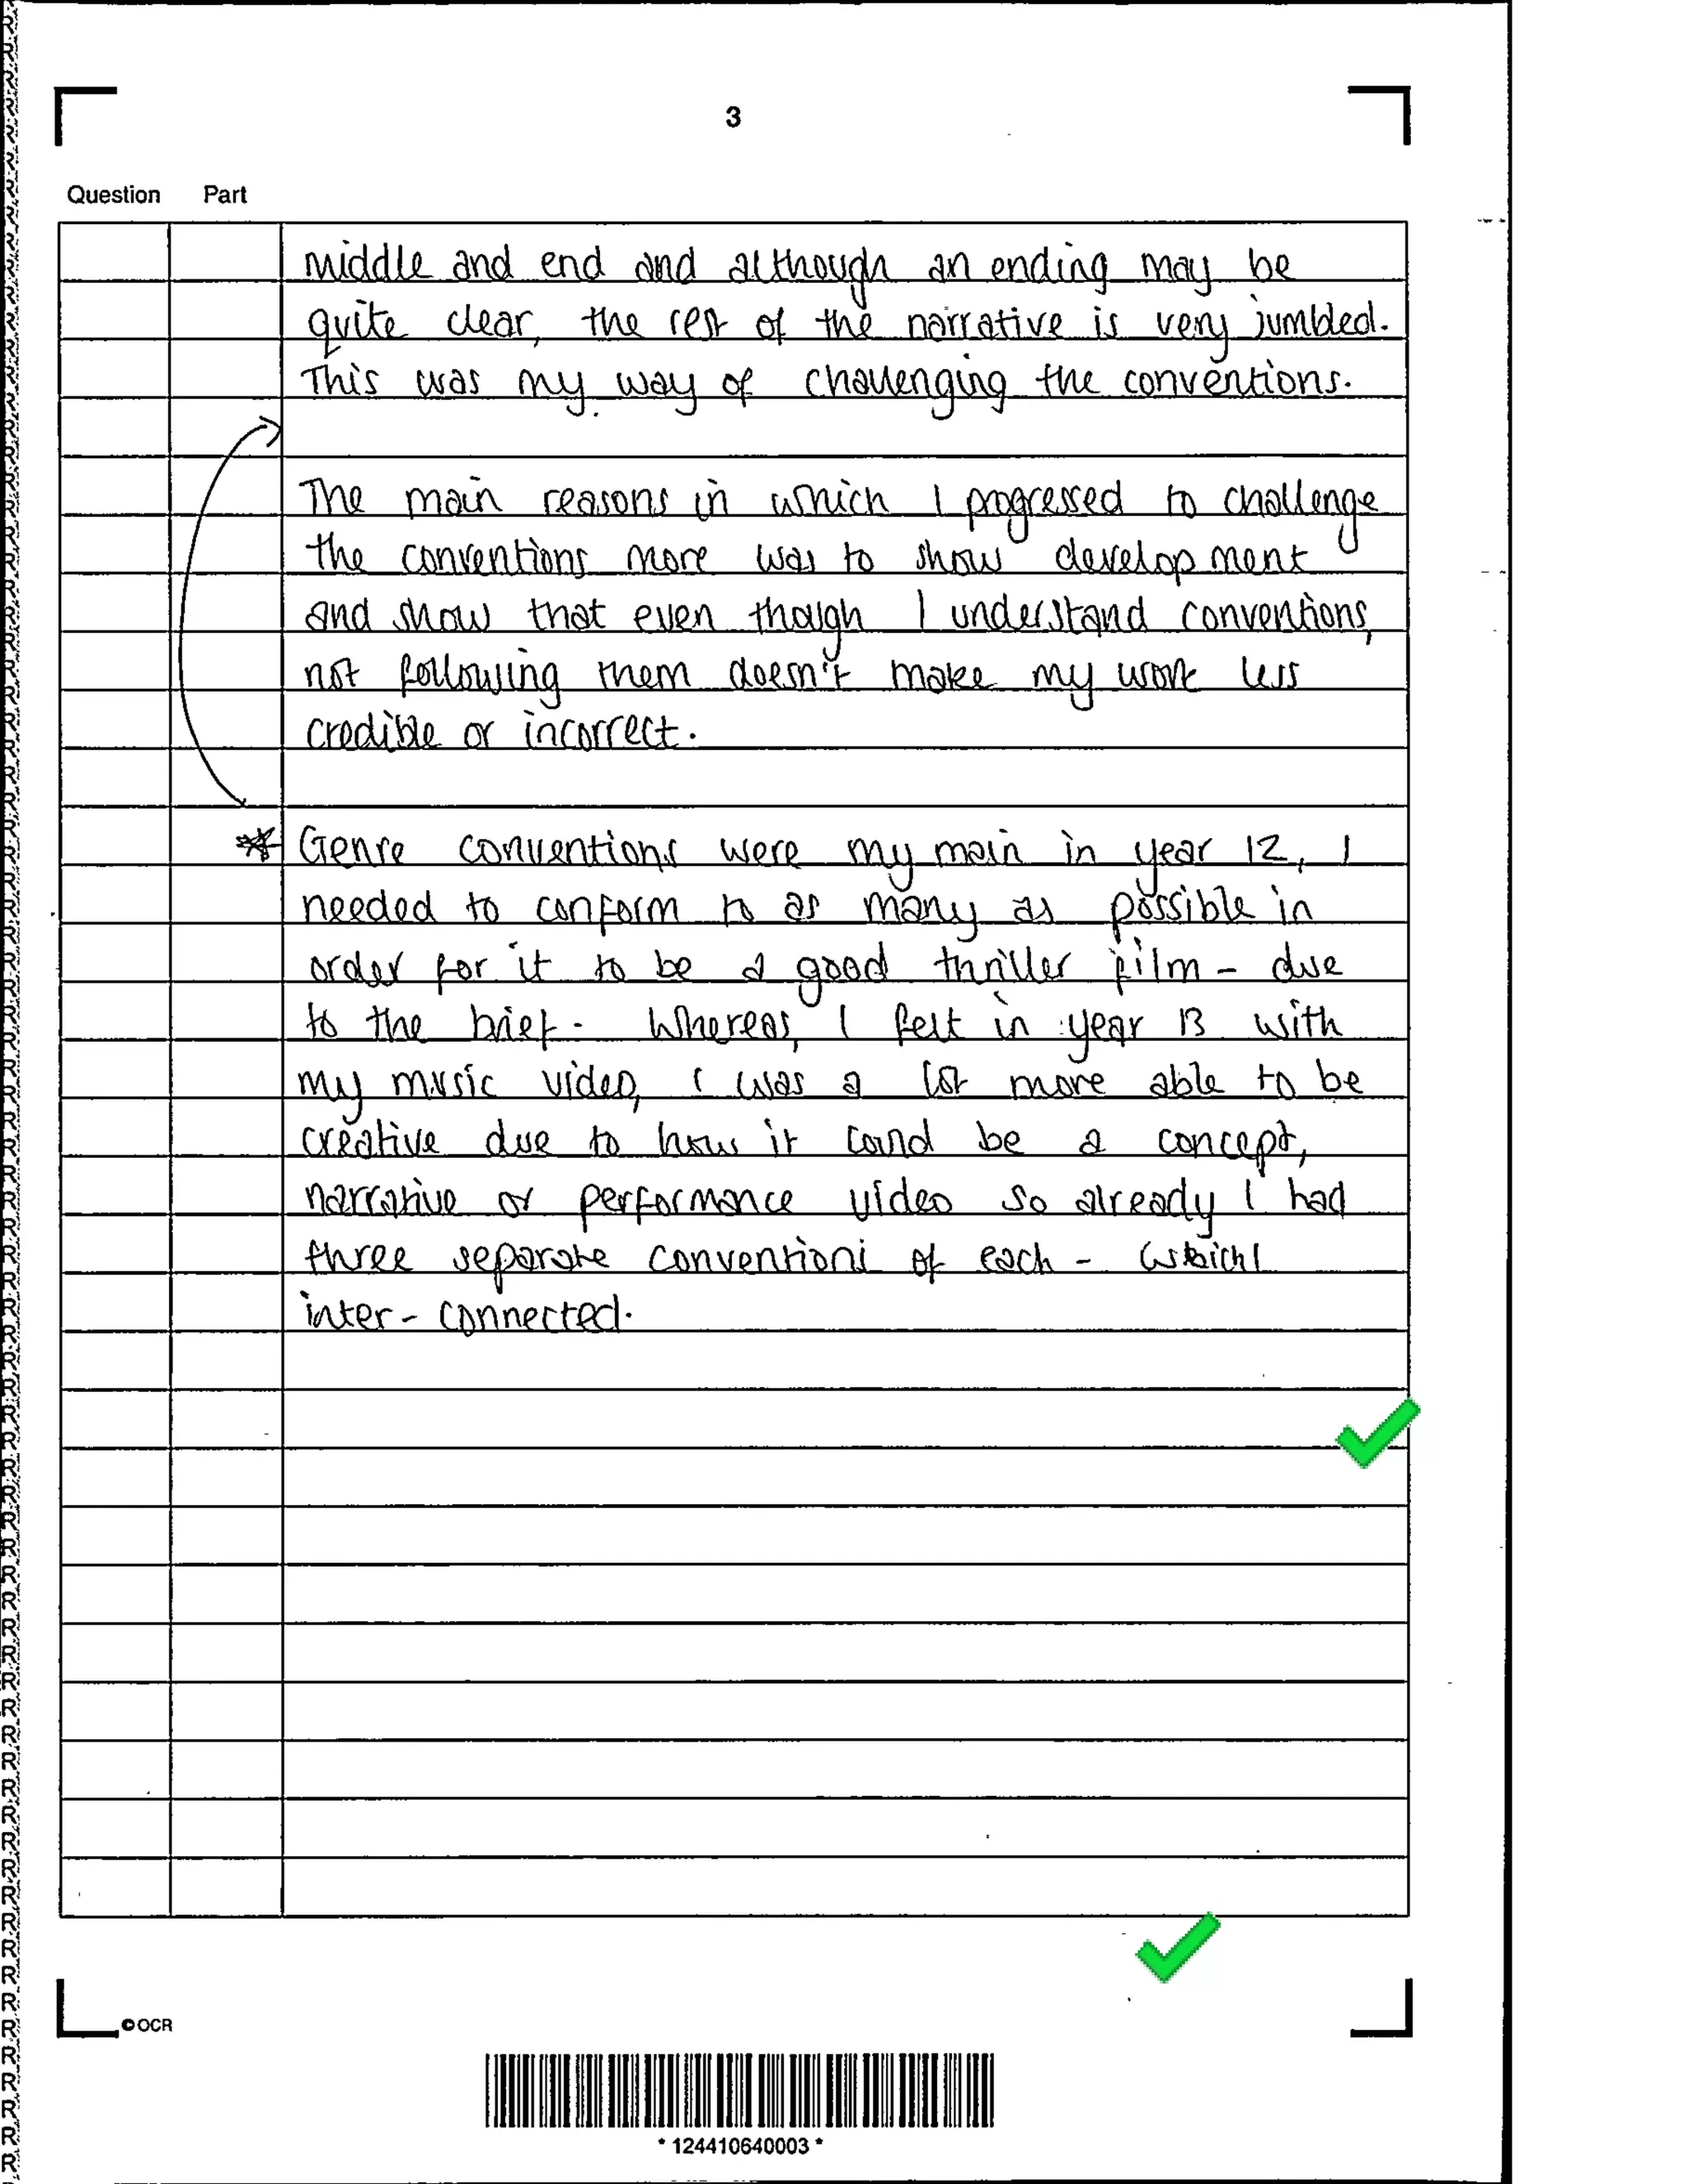 3
Question Part
middle and end and although an ending may be
quite clear, the rest of the narrative is very jumbled.
This was my way of challenging the conventions.
The main reasons in which I progressed to challenge
the conventions more was to show development
and show that even though I understand conventions,
not following them doesn't make my work less
credible or incorrect.
* Genre conventions were my main in year 12, I
needed to conform to as many as possible in
order for it to be a good thriller film - due
to the brief. Whereas, I felt in year 13 with
my music video, I was a lot more able to be
creative due to how it could be a concept,
narrative or performance video so already I had
three separate conventions of each - which
inter-connected.
©OCR
* 124410640003 *